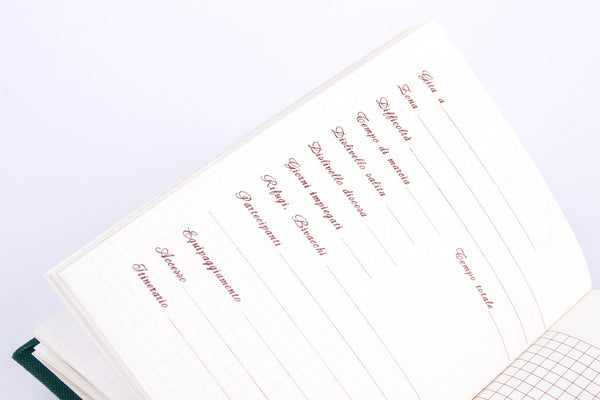 Gita a
Zona
Difficoltà
Tempo di marcia
Tempo totale
Dislivello salita
Dislivello discesa
Giorni impiegati
Rifugi, Bivacchi
Partecipanti
Equipaggiamento
Accesso
Itinerario